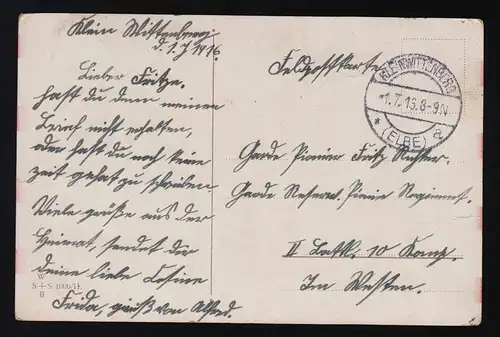 Klein Wittenberg
d. 1.7 1916.
Lieber Fritze.
hast du denn meinen
Brief nicht erhalten,
oder hast du noch keine
zeit gehat zu schreiben
Viele grüße aus der
Heimat, sendet dir
deine liebe Cosine
Frida, gruß von Alfred.
W
S+S
8
Feldpostkarte
KLEINWITTENBERG
-1.7.16.8-9N
* (ELBE) a
Garde Pionier Fritz Richter.
Garde Reserve. Pionier Regiment.
II Batl. 10 Komp.
Im Westen.